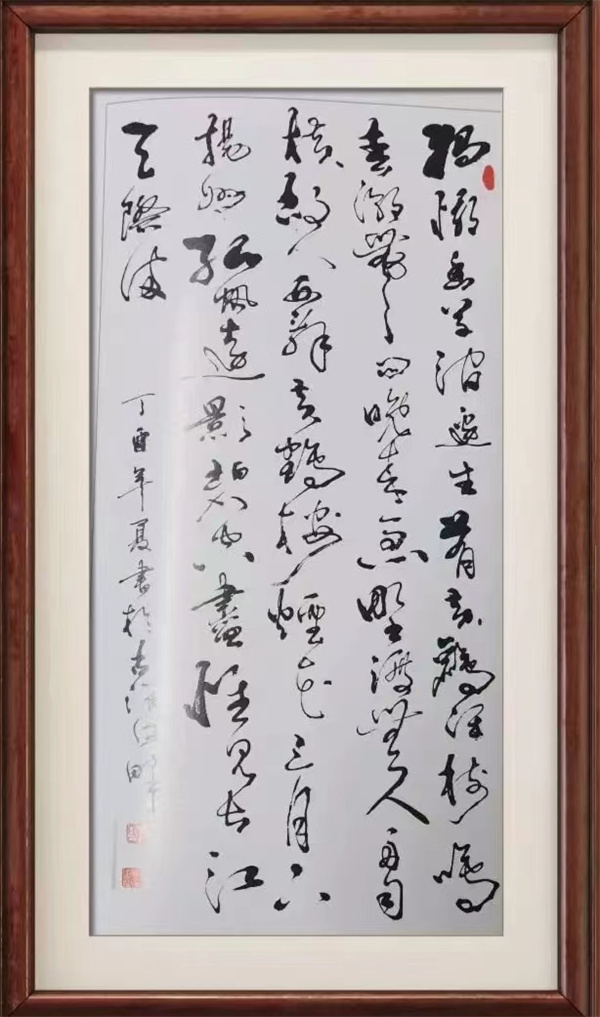 獨憐幽草澗邊生上有黃鸝深樹鳴
春潮帶雨晚來急野渡無人舟自
橫故人西辭黃鶴樓煙花三月下
揚州孤帆遠影碧空盡惟見長江
天際流
丁酉年夏書於古